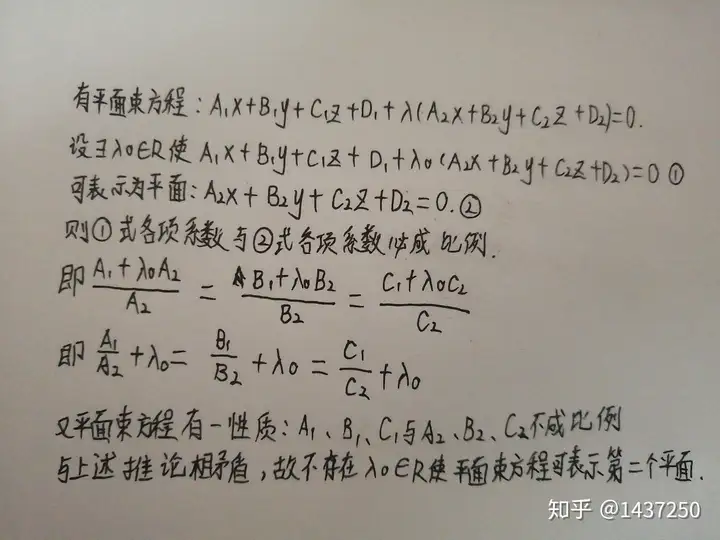 有平面束方程:A₁x+B₁y+C₁z+D₁+λ(A₂x+B₂y+C₂z+D₂)=0.
设∃λ₀∈R使 A₁x+B₁y+C₁z+D₁+λ₀(A₂x+B₂y+C₂z+D₂)=0 ①
可表示为平面:A₂x+B₂y+C₂z+D₂=0.②
则①式各项系数与②式各项系数必成比例.
即 (A₁+λ₀A₂)/A₂ = (B₁+λ₀B₂)/B₂ = (C₁+λ₀C₂)/C₂
即 A₁/A₂+λ₀= B₁/B₂+λ₀ = C₁/C₂+λ₀
又平面束方程有一性质:A₁、B₁、C₁与A₂、B₂、C₂不成比例
与上述推论相矛盾,故不存在λ₀∈R使平面束方程可表示第二个平面.
知乎 @1437250